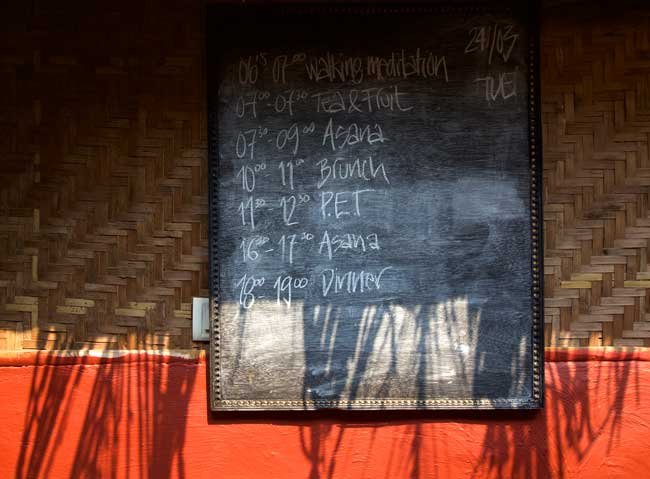 24/03
TUE
06¹⁵ 07⁰⁰ walking meditation
07⁰⁰-07³⁰ Tea & Fruit
07³⁰-09⁰⁰ Asana
10⁰⁰ 11⁰⁰ Brunch
11³⁰-12³⁰ P.E.T
16⁰⁰-17³⁰ Asana
18⁰⁰-19⁰⁰ Dinner